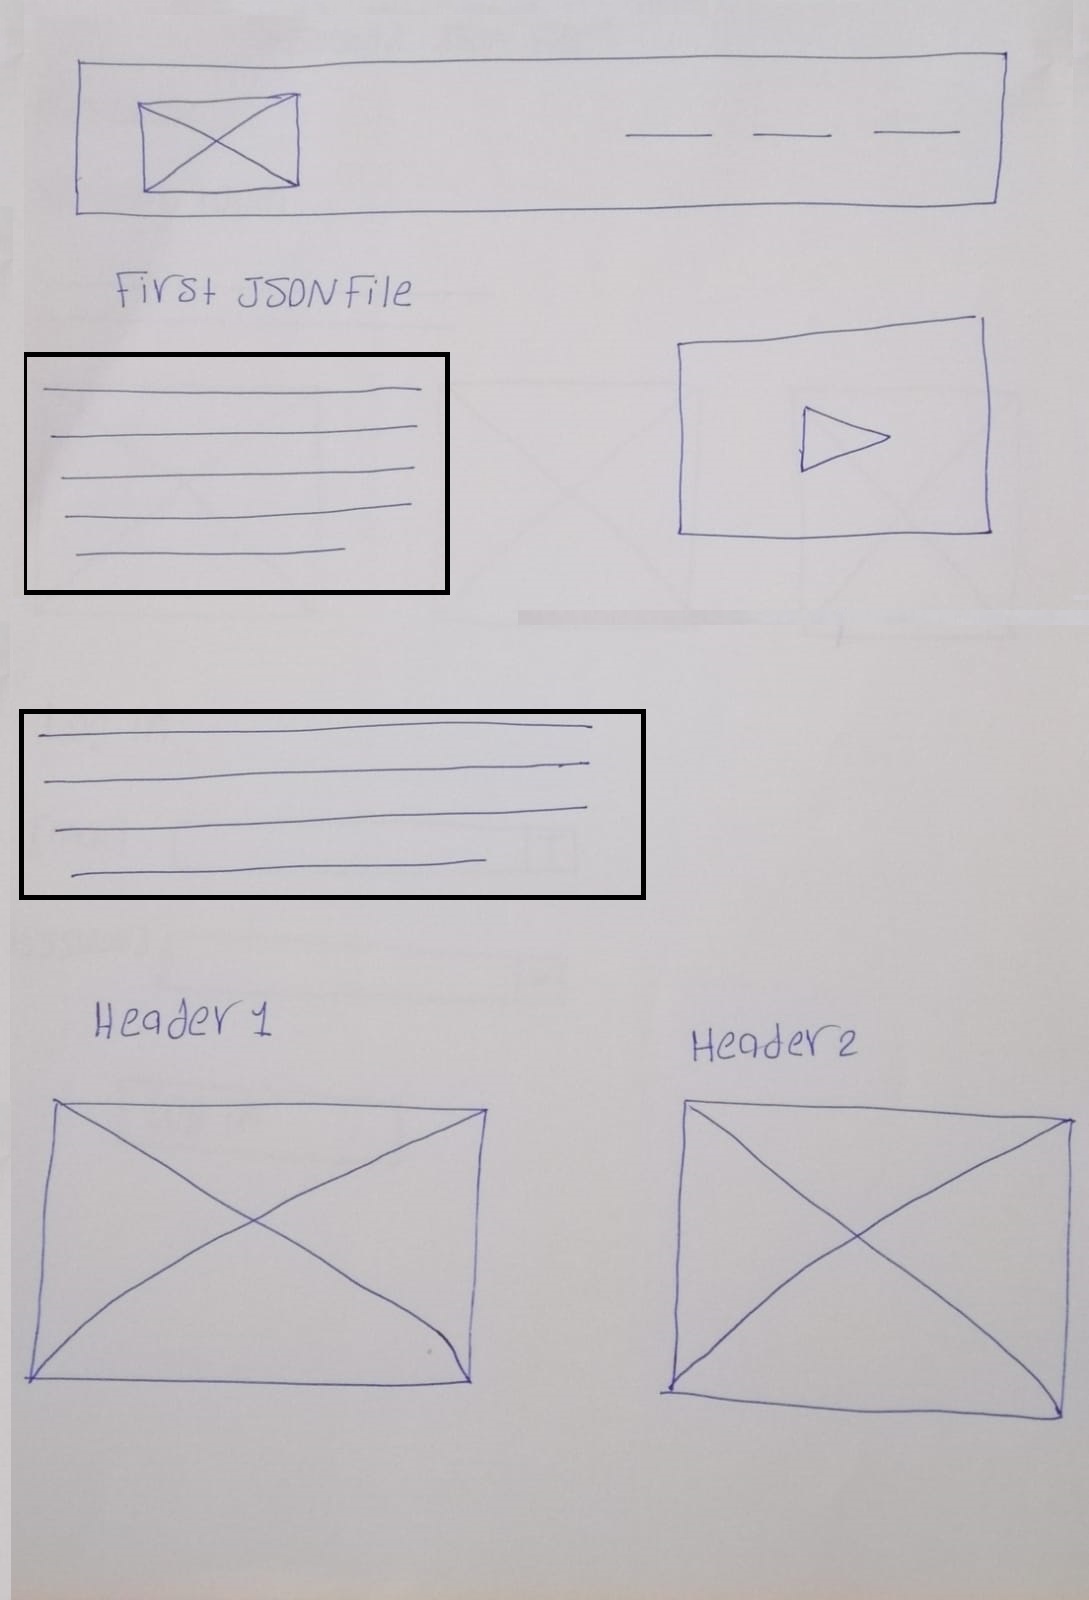 First JSON File
Header 1
Header 2